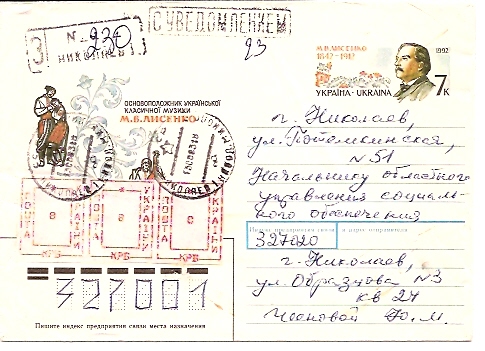 С УВЕДОМЛЕНИЕМ
З
N 230
НИКОЛАЕВ
23
ОСНОВОПОЛОЖНИК УКРАЇНСЬКОЇ
КЛАСИЧНОЇ МУЗИКИ
М.В.ЛИСЕНКО
М.В.ЛИСЕНКО
1842-1912
1992
УКРАЇНА · UKRAINA
7к
г. Николаев,
ул. Потемкинская,
N 51
Начальнику областного
управления социаль-
ного обеспечения
ПОШТА УКРАЇНИ
КРБ
ПОШТА УКРАЇНИ
КРБ
ПОШТА УКРАЇНИ
КРБ
Индекс предприятия связи и адрес отправителя
327020
г. Николаев,
ул. Образцова N3
кв 24
327001
Пишите индекс предприятия связи места назначения